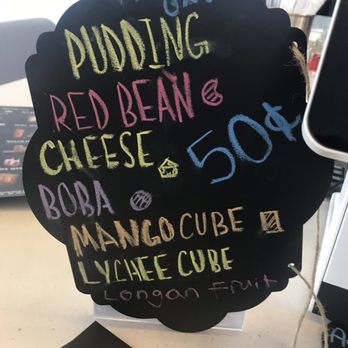 PUDDING
RED BEAN
CHEESE
50¢
BOBA
MANGO CUBE
LYCHEE CUBE
Longan Fruit